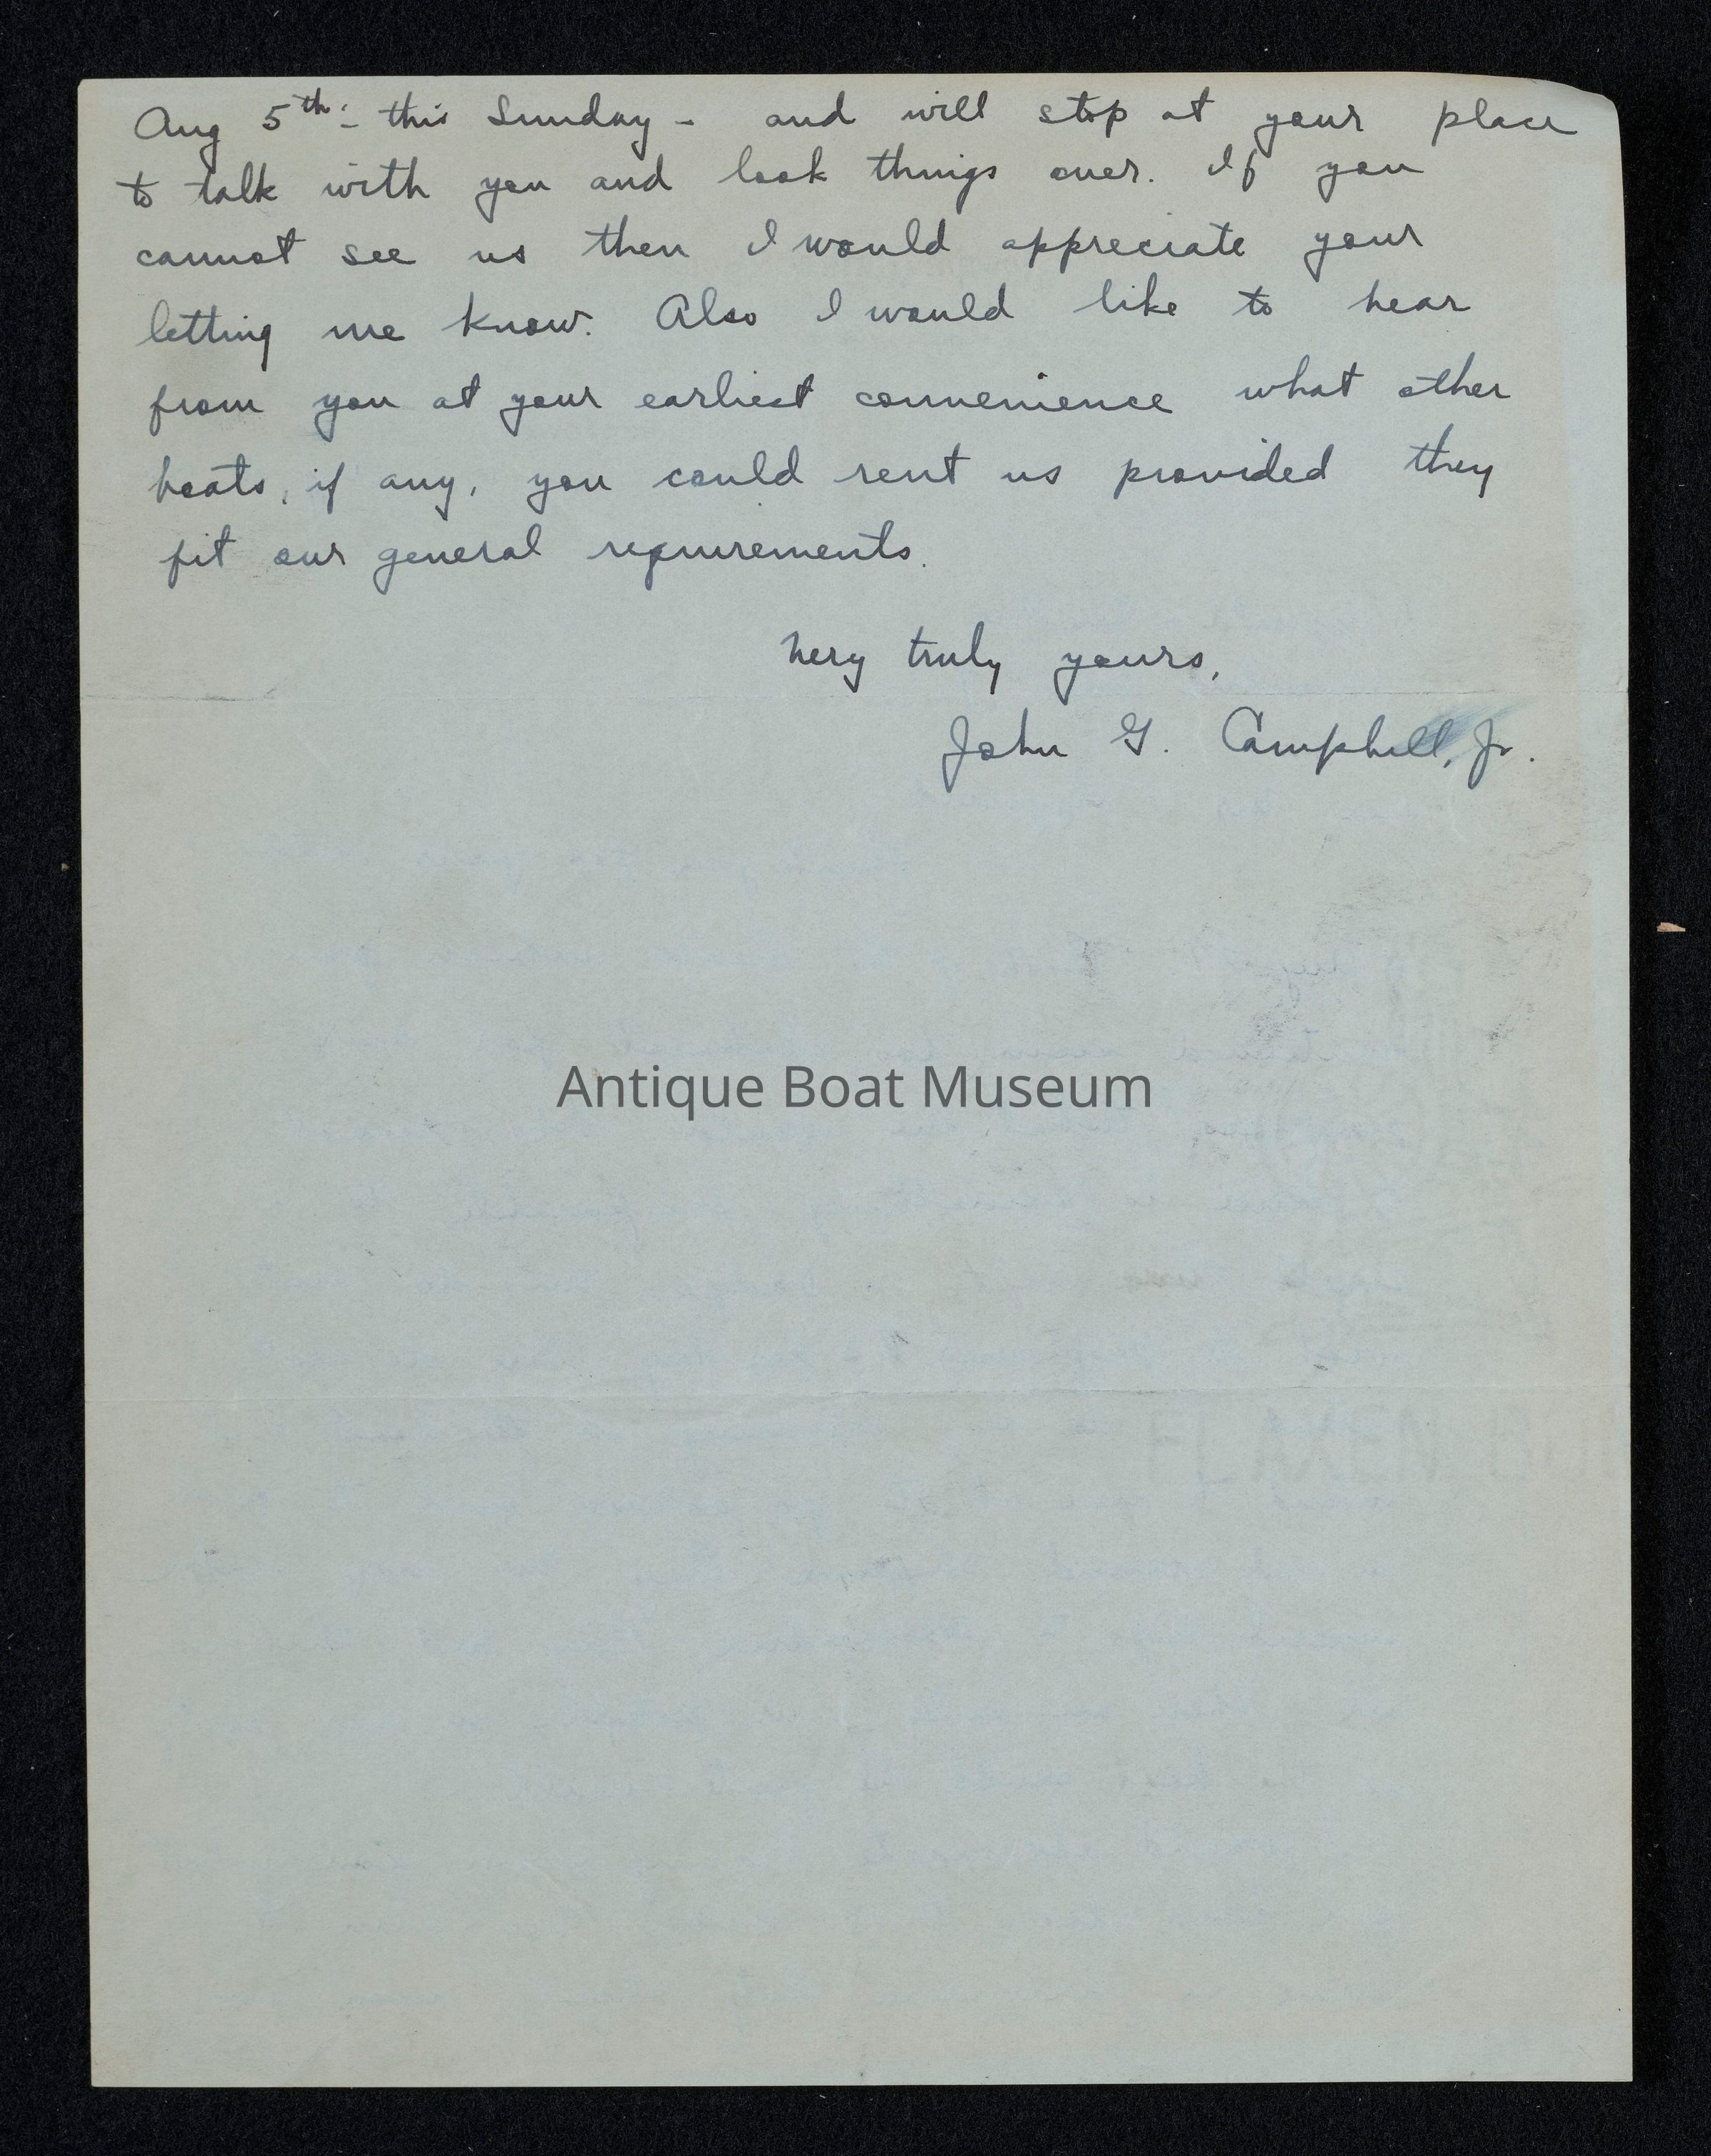 Aug 5th - this Sunday - and will stop at your place
to talk with you and look things over. If you
cannot see us then I would appreciate your
letting me know. Also I would like to hear
from you at your earliest convenience what other
boats, if any, you could rent us provided they
fit our general requirements.
Very truly yours,
John G. Campbell, Jr.
Antique Boat Museum